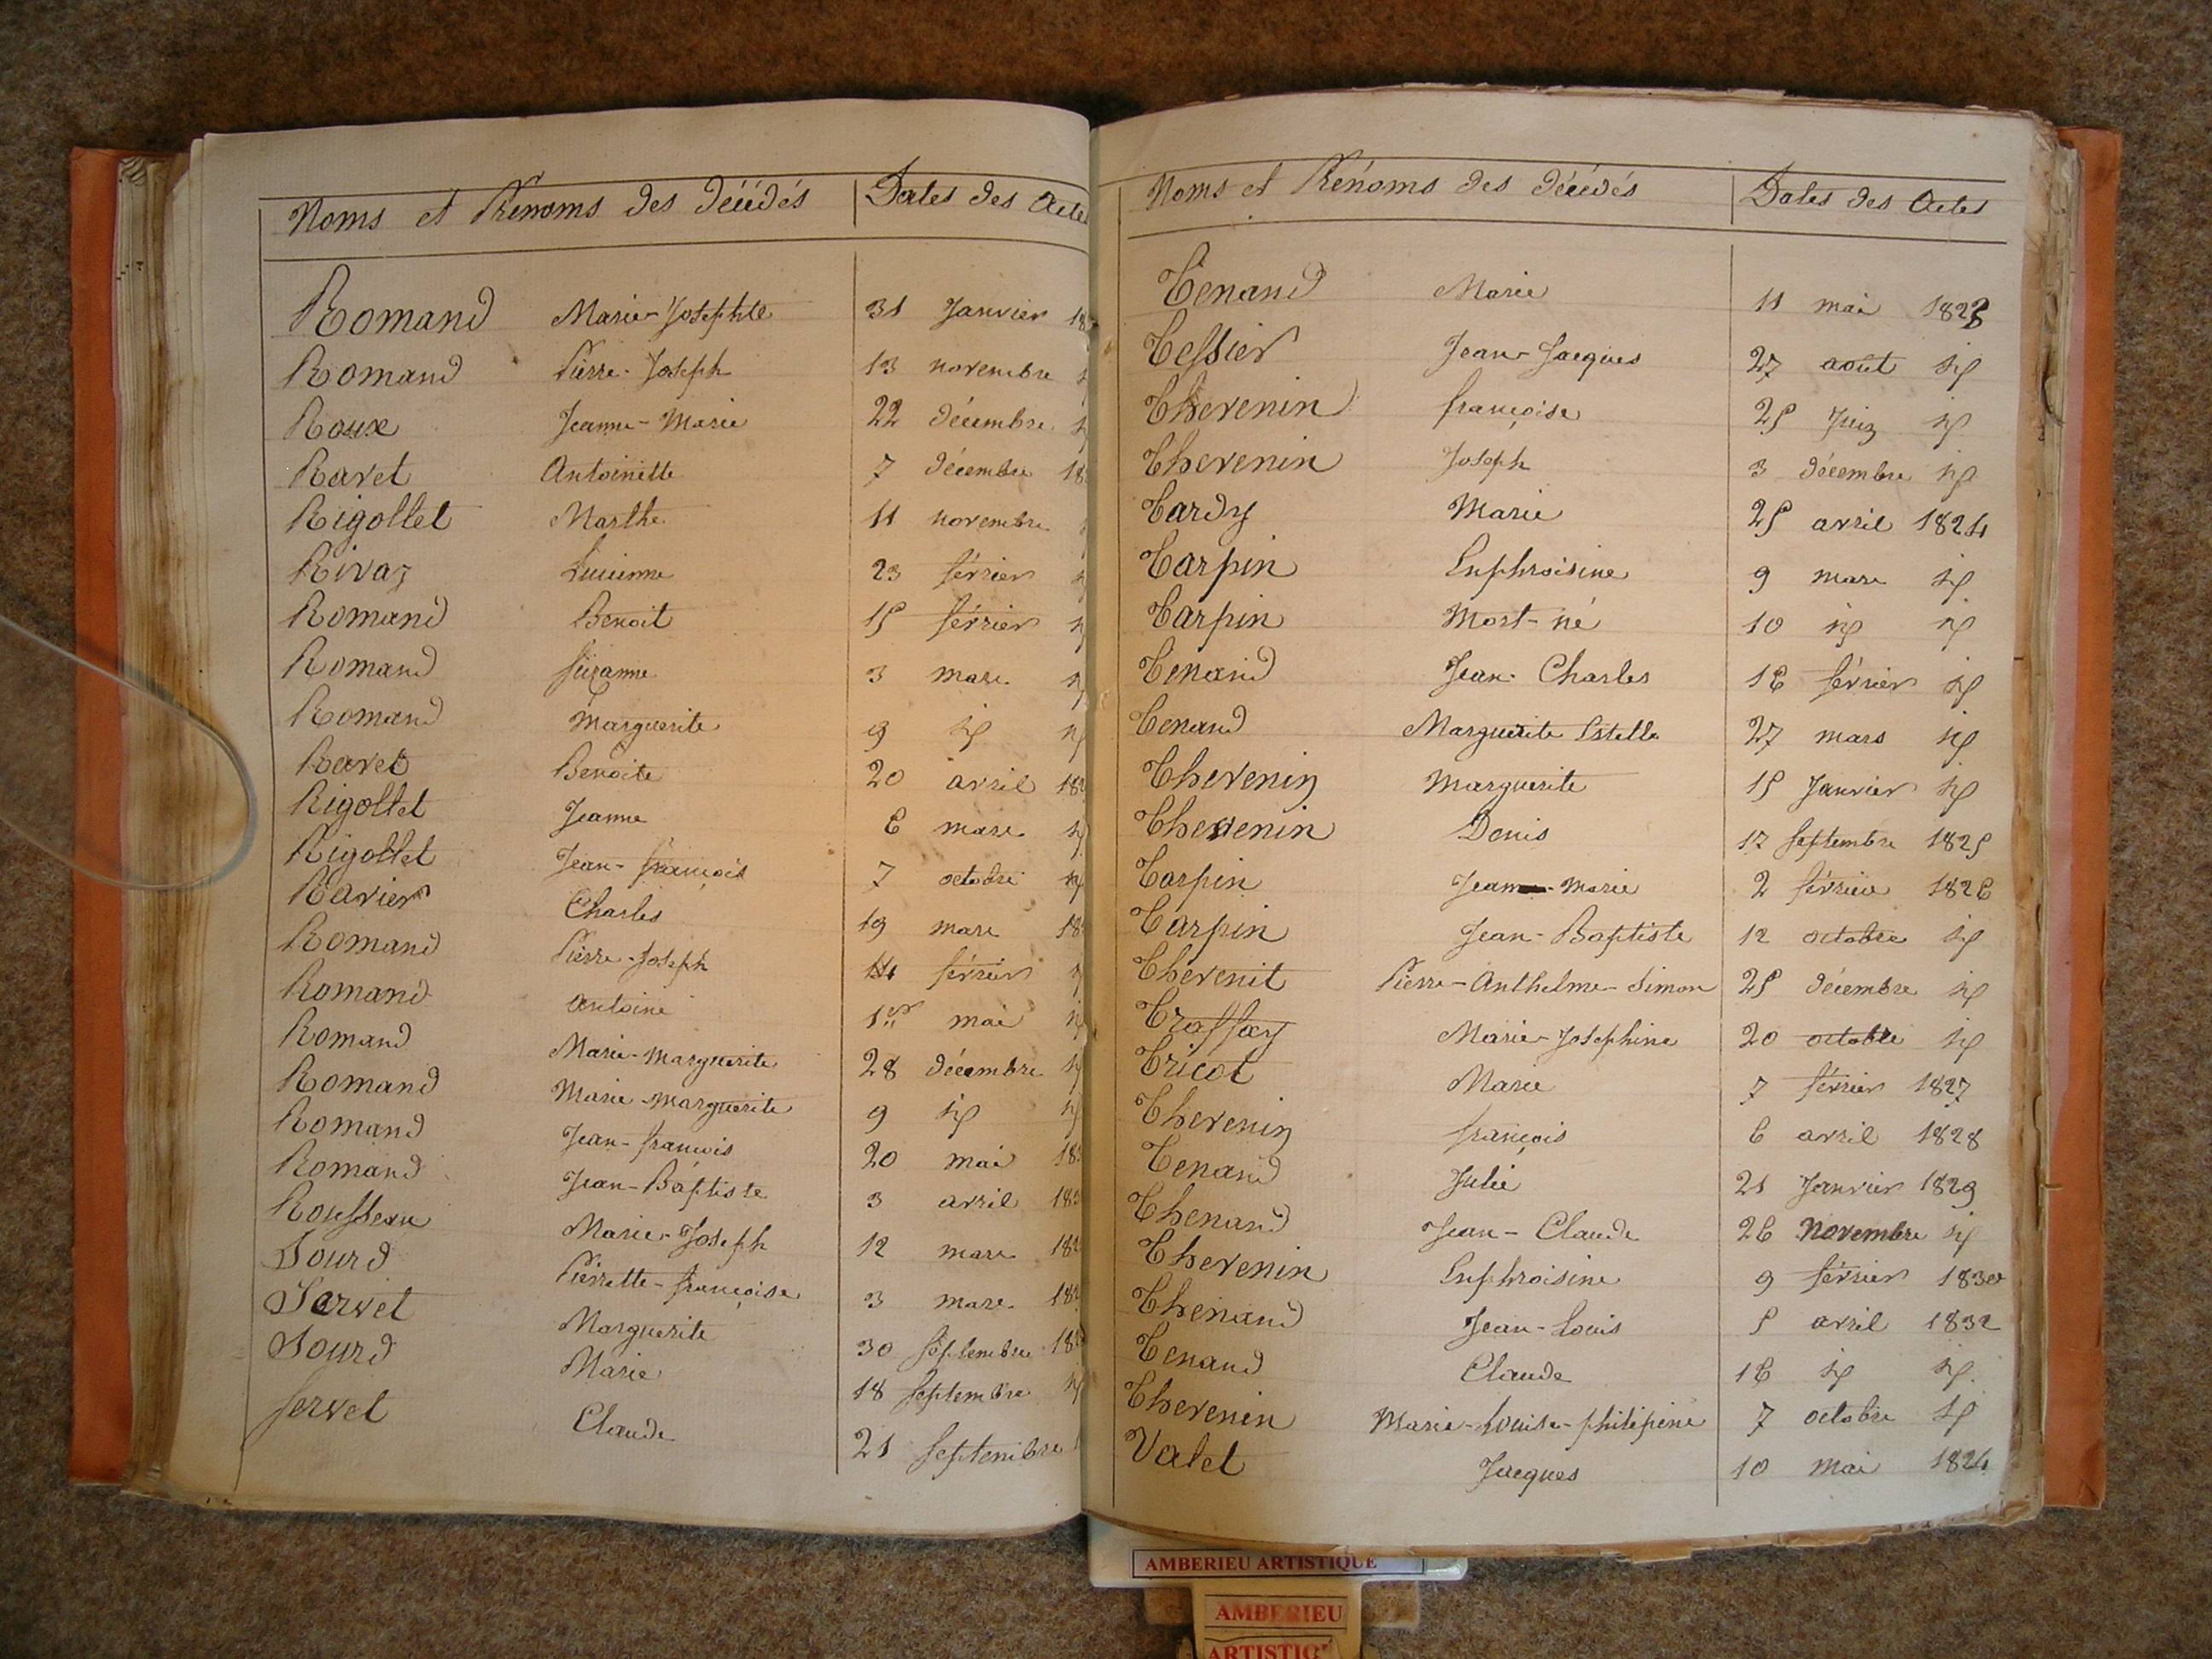 Noms et Prénoms des décédés Dates des Actes
Romand Marie-Josephte 31 Janvier 18
Romand Pierre-Joseph 13 novembre
Roux Jeanne-Marie 22 décembre
Ravet Antoinette 7 décembre 18
Rigollet Marthe 11 novembre
Rivaz Lucienne 23 février
Romand Benoit 15 février
Romand Suzanne 3 mars
Romand Marguerite 9 id id
Ravet Benoite 20 avril 182
Rigollet Jeanne 6 mars id
Rigollet Jean-françois 7 octobre id
Ravier Charles 19 mars 18
Romand Pierre-Joseph 14 février
Romand Antoine 1er mai id
Romand Marie-Marguerite 28 décembre id
Romand Marie-Marguerite 9 id id
Romand Jean-francois 20 mai 183
Romand Jean-Baptiste 3 avril 183
Rousseau Marie-Joseph 12 mars 182
Sourd Pierrette-françoise 3 mars 182
Servet Marguerite 30 septembre 18
Sourd Marie 18 septembre id
Servet Claude 21 septembre
Noms et Prénoms des décédés Dates des Actes
Tenand Marie 11 mai 1823
Tessier Jean-Jacques 27 août id
Thevenin françoise 25 Juin id
Thevenin Joseph 3 décembre id
Tardy Marie 25 avril 1824
Tarpin Euphroisine 9 mars id
Tarpin Mort-né 10 id id
Tenand Jean-Charles 16 février id
Tenand Marguerite Estelle 27 mars id
Thevenin Marguerite 15 Janvier id
Thevenin Denis 17 septembre 1825
Tarpin Jean-Marie 2 février 1826
Tarpin Jean-Baptiste 12 octobre id
Thevenit Pierre-Anthelme-Simon 25 décembre id
Traffay Marie-Josephine 20 octobre id
Tricot Marie 7 février 1827
Thevenin françois 6 avril 1828
Tenand Julie 21 Janvier 1829
Thenand Jean-Claude 26 novembre id
Thevenin Euphroisine 9 février 1830
Thenand Jean-Louis 5 avril 1832
Tenand Claude 16 id id
Thevenin Marie-Louise-philipine 7 octobre id
Valet Jacques 10 mai 1824
AMBERIEU ARTISTIQUE
AMBERIEU